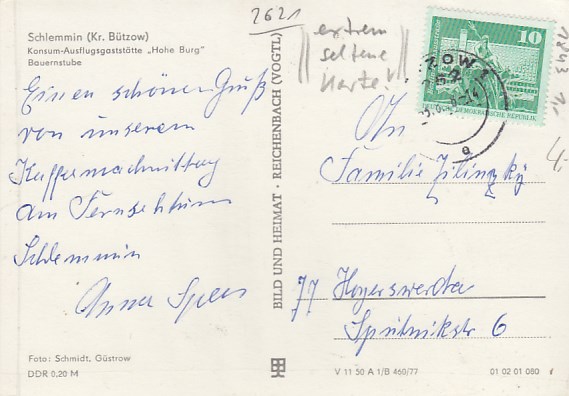 2621
Schlemmin (Kr. Bützow)
Konsum-Ausflugsgaststätte „Hohe Burg"
Bauernstube
extrem
seltene
Karte!
10
DEUTSCHE DEMOKRATISCHE REPUBLIK
1843 1,-
4,-
Einen schönen Gruß
von unserem
Kaffeenachmittag
am Fernsehturm
Schlemmin
BILD UND HEIMAT · REICHENBACH (VOGTL)
An
Familie Jilinzky
77 Hoyerswerda
Sputnikstr 6
Foto: Schmidt, Güstrow
DDR 0,20 M
V 11 50 A 1/B 460/77
01 02 01 080